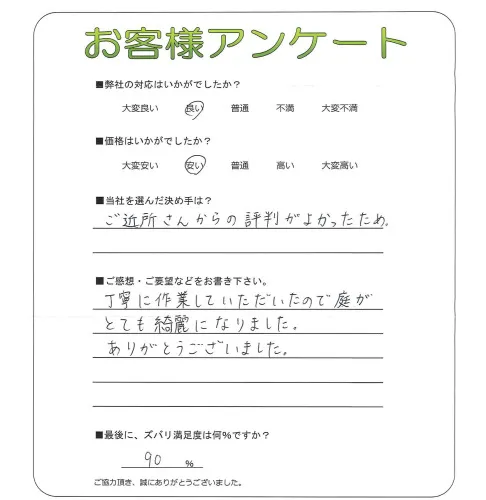 お客様アンケート
■弊社の対応はいかがでしたか？
大変良い 良い 普通 不満 大変不満
■価格はいかがでしたか？
大変安い 安い 普通 高い 大変高い
■当社を選んだ決め手は？
ご近所さんからの評判がよかったため。
■ご感想・ご要望などをお書き下さい。
丁寧に作業していただいたので庭が
とても綺麗になりました。
ありがとうございました。
■最後に、ズバリ満足度は何%ですか？
90 %
ご協力頂き、誠にありがとうございました。